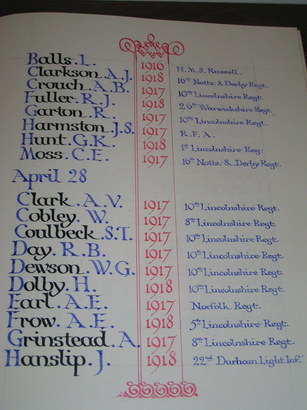 Balls. L. 1916 H.M.S. Russell.
Clarkson. A.J. 1918 16th Notts. & Derby Regt.
Crouch. A.B. 1917 10th Lincolnshire Regt.
Fuller. R.J. 1918 2/6th Warwickshire Regt.
Garton. R. 1917 10th Lincolnshire Regt.
Harmston. J.S. 1917 R.F.A.
Hunt. G.K. 1918 1st Lincolnshire Reg.
Moss. C.E. 1917 16th Notts. & Derby Regt.
April 28
Clark. A.V. 1917 10th Lincolnshire Regt.
Cobley. W. 1917 8th Lincolnshire Regt.
Coulbeck. S.T. 1917 10th Lincolnshire Regt.
Day. R.B. 1917 10th Lincolnshire Regt.
Dewson. W.G. 1917 10th Lincolnshire Regt.
Dolby. H. 1918 10th Lincolnshire Regt.
Earl. A.E. 1917 Norfolk Regt.
Frow. A.E. 1918 5th Lincolnshire Regt.
Grinstead. A. 1917 8th Lincolnshire Regt.
Hanslip. J. 1918 22nd Durham Light Inf.